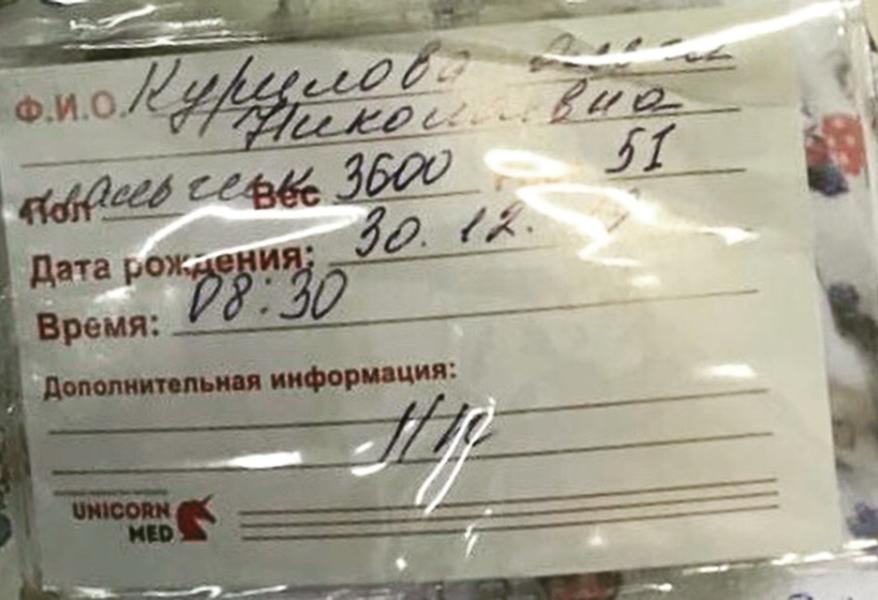 Ф.И.О. Курилова
Николаевна
Пол мальчик Вес 3600 51
Дата рождения: 30. 12.
Время: 08:30
Дополнительная информация:
UNICORN
MED